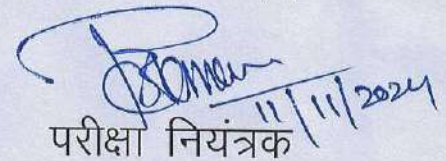 11/11/2024
परीक्षा नियंत्रक